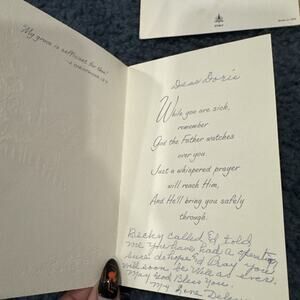 "My grace is sufficient for thee"
Dear Doris
While you are sick,
remember
God the Father watches
over you.
Just a whispered prayer
will reach Him,
And He'll bring you safely
through.
Becky called & told
me you have had a
I Pray you
will soon be Well as ever.
May God Bless You.
My Love